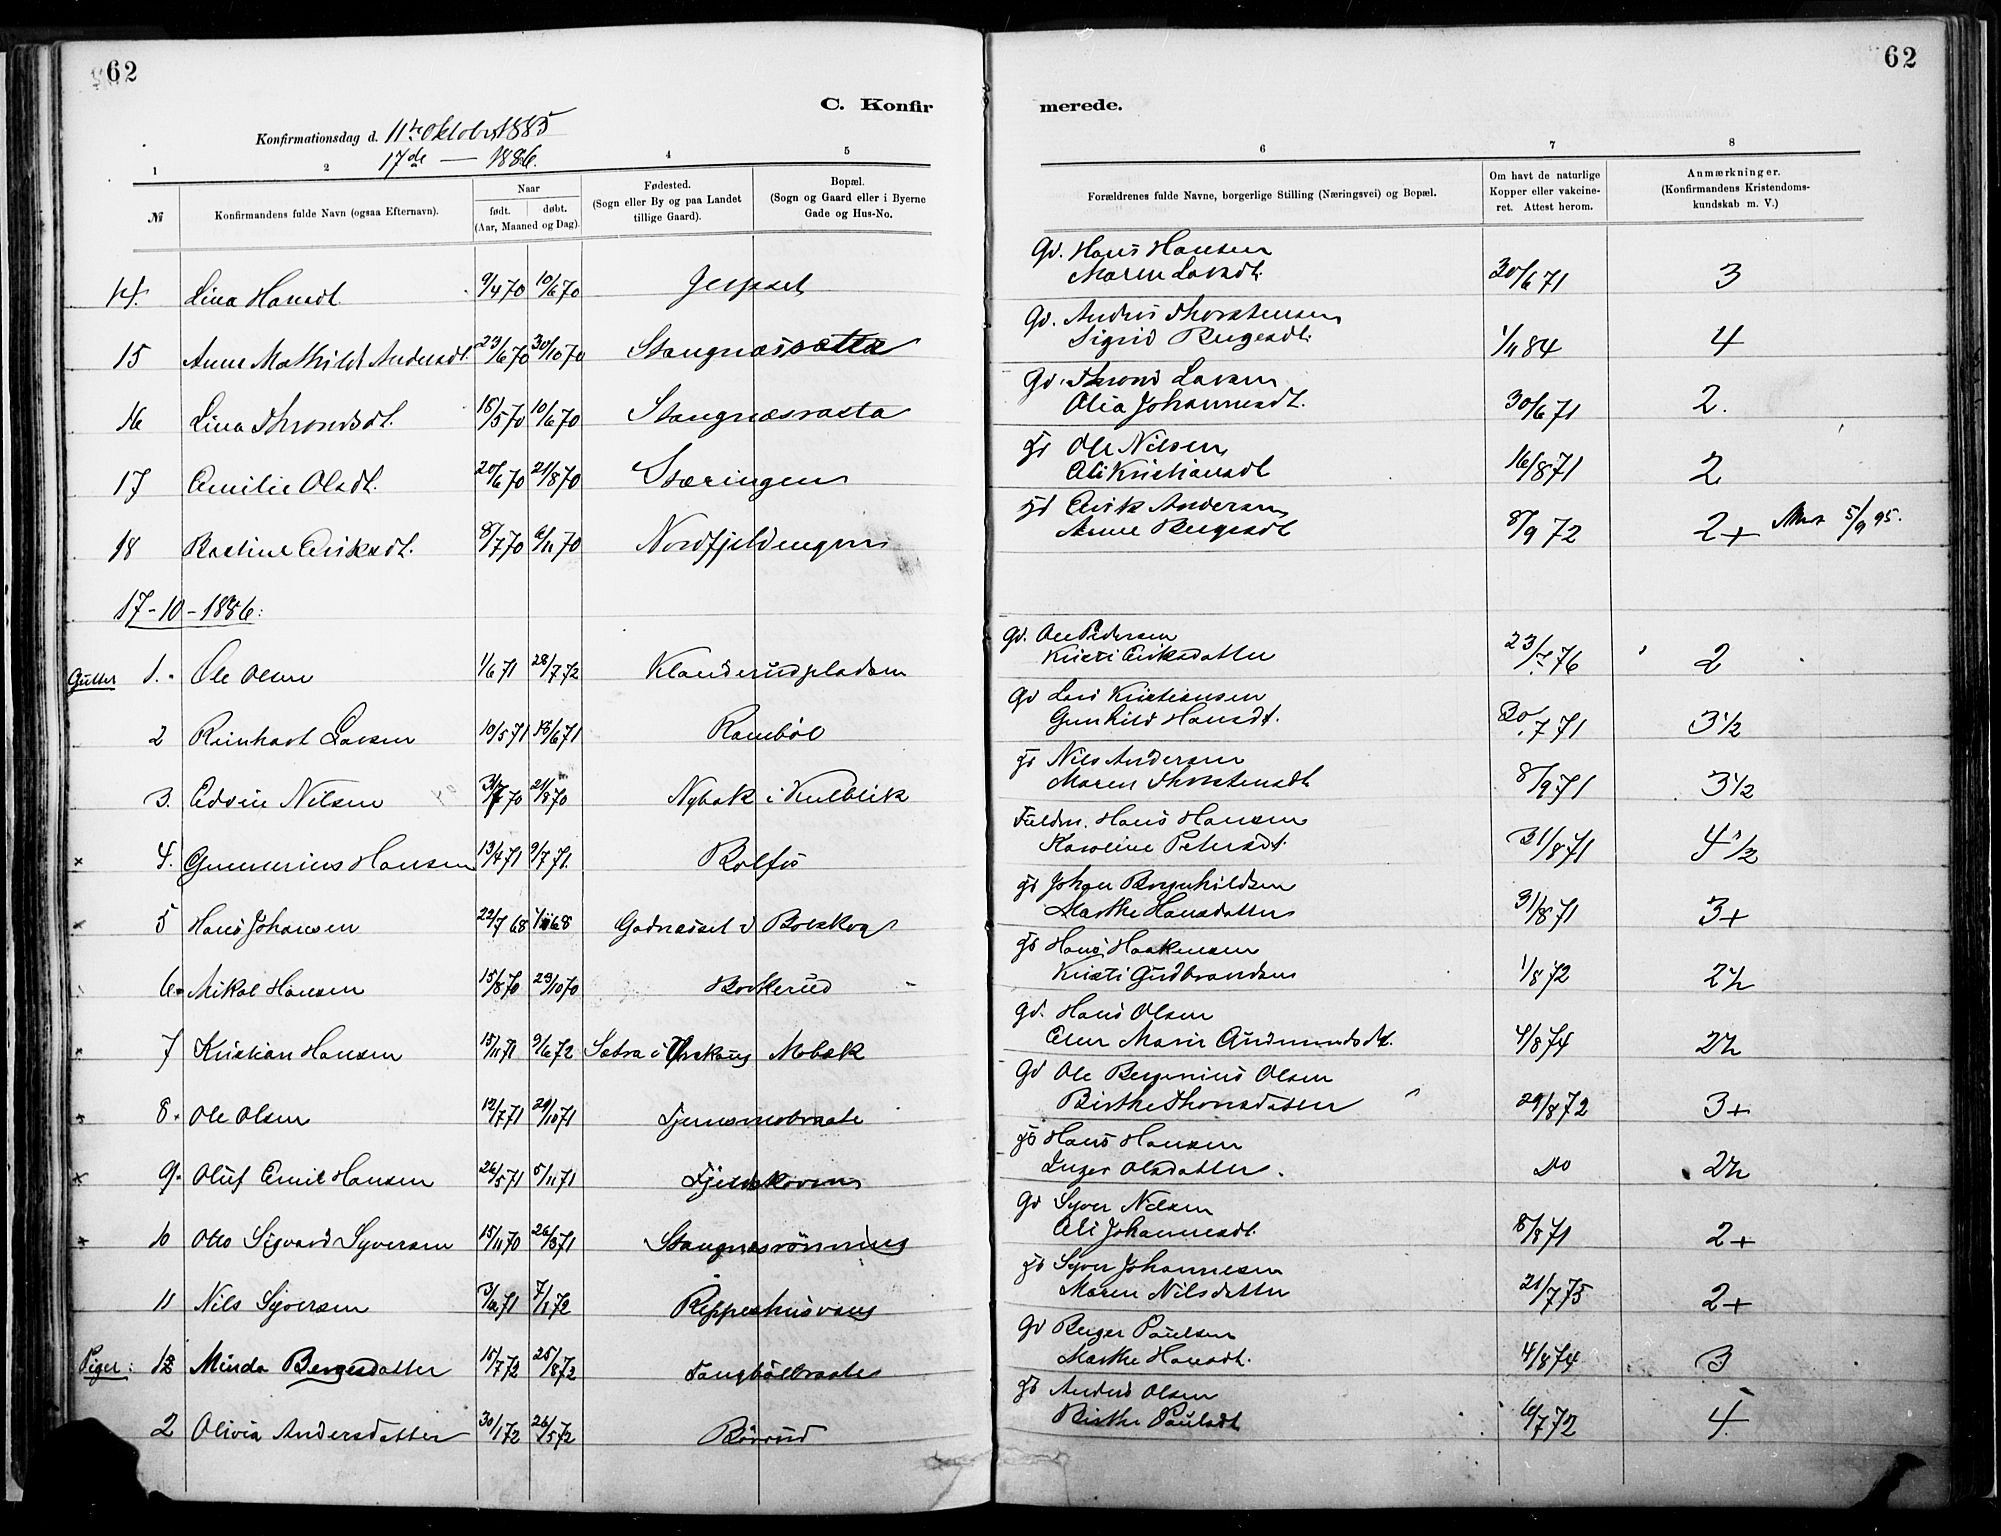 62
62
C. Konfir
merede.
Konfirmationsdag d. 11te Oktober 1885
17de — 1886.
1 2 4 5 6 7 8
№
Konfirmandens fulde Navn (ogsaa Efternavn).
Naar
født. døbt.
(Aar, Maaned og Dag).
Fødested.
(Sogn eller By og paa Landet
tillige Gaard).
Bopæl.
(Sogn og Gaard eller i Byerne
Gade og Hus-No.
Forældrenes fulde Navne, borgerlige Stilling (Næringsvei) og Bopæl.
Om havt de naturlige
Kopper eller vakcine-
ret. Attest herom.
Anmærkninger.
(Konfirmandens Kristendoms-
kundskab m. V.)
14. Lina Hansdt. 9/4 70 10/6 70
Gd. Hans Hansen
Maren Larsdt. 30/6 71 3
15 Anne Mathilde Andersdt. 23/6 70 30/10 70 Stangnæssætta
Gd. Anders Thorstensen
Sigrid Bergesdt. 1/11 84 4
16 Lina Throndsdt. 18/5 70 10/6 70 Stangnæsrasta
Gd. Thrond Larsen
Olia Johannesdt. 30/6 71 2.
17 Emilie Olsdt. 20/6 70 21/8 70 Stæringen
Ole Nilsen
Oli Kristiansdt. 16/8 71 2
18 Bastine Eriksdt. 8/7 70 6/11 70 Nordfjeldengen
Erik Andersen
Anne Bergesdt. 8/9 72 2+ 5/9 95.
17-10-1886:
Gutter 1. Ole Olsen 1/6 71 28/7 72 Klanderudpladsen
Gd. Ole Pedersen
Kristi Eriksdatter 23/7 76 2
2 Reinhart Larsen 10/5 71 18/6 71 Rambøl
Gd Lars Kristiansen
Gunhild Hansdt. 20/7 71 3½
3. Edvin Nilsen 31/7 70 21/8 70 Nybak i Kulblik
Nils Andersen
Maren Thorstensdt. 8/9 71 3½
× 4. Gunnerius Hansen 13/4 71 9/7 71. Rolfs
Fuldm. Hans Hansen
Karoline Petersdt. 31/8 71 4½
× 5 Hans Johansen 22/7 68 1/11 68
Johan Bognhildsen
Marthe Hansdatter 31/8 71 3+
6. Mikal Hansen 15/8 70 23/10 70 Borkerud
Hans Haakensen
Kristi Gudbrandsen 1/8 72 2½
× 7 Kristian Hansen 15/11 71 9/6 72 Mobæk
Gd. Hans Olsen
Elen Marie Gudmundsdt. 4/8 74 2½
× 8. Ole Olsen 12/7 71 29/10 71
Gd Ole Bergenius Olsen
Birthe Thorsdatter 29/8 72 3+
× 9. Oluf Emil Hansen 26/5 71 5/11 71 Fjeldskoven
Hans Hansen
Inger Olsdatter. Do 2½
× 10 Otto Sigvard Syversen 15/11 70 26/3 71 Stangnæsrønning
Gd Syver Nilsen
Oli Johannesdt. 8/8 71 2+
11 Nils Syversen 7/1 72 Reppeshusvang
Syver Johannesen
Maren Nilsdatter 21/7 75 2+
Piger: 1 Minda Bergesdatter 15/7 72 25/8 72
Gd Berger Paulsen
Marthe Hansdt. 4/8 74 3
2 Olivia Andersdatter 30/1 72 26/5 72 Rørud
Anders Olsen
Birthe Paulsdt. 6/7 72 4.